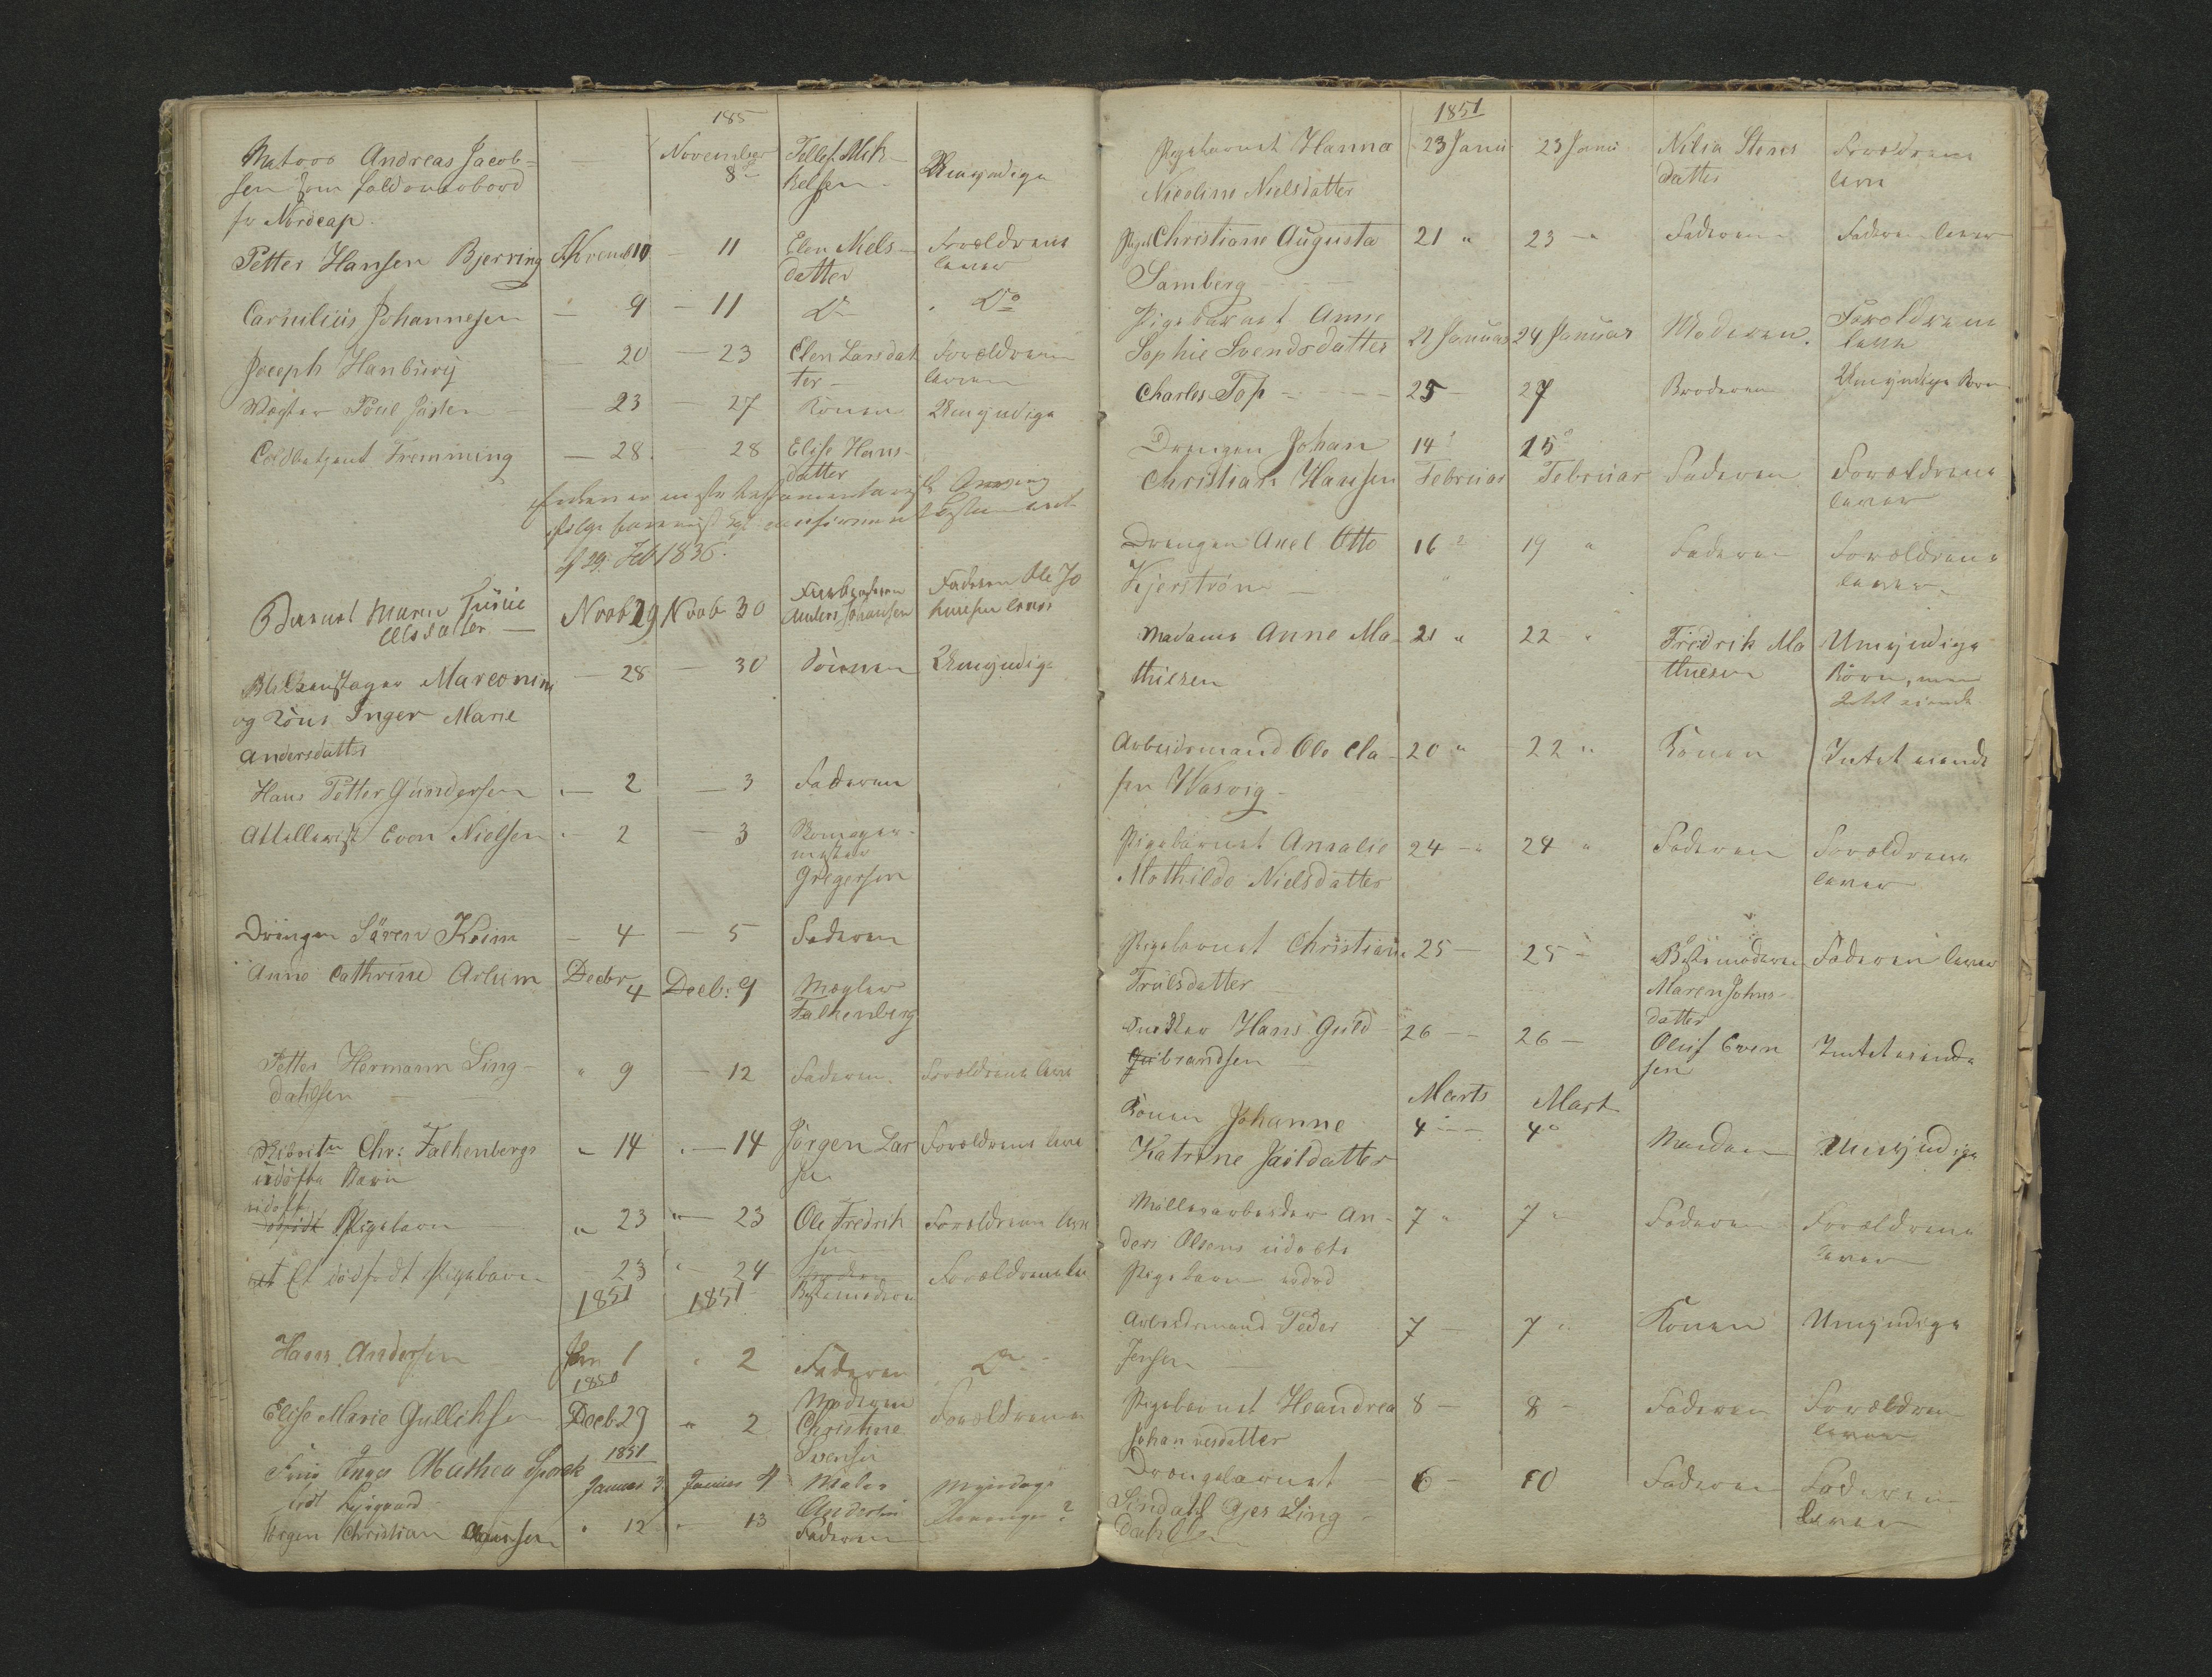 185
Matros Andreas Jacob-
sen som faldt overbord
fr Nordcap.
November 8 Tellef Mik-
kelsen Umyndige
Petter Hansen Bjerring Novemb 10 — 11 Elen Niels-
datter Forældrene
lever
Carnilius Johannesen — 9 — 11 Do Do
Joseph Hanbürij — 20 — 23 Elen Larsdat
ter — Forældrene
lever
Poul — 23 — 27 Konen Umyndige
Fremming — 28 — 28 Elise Hans-
datter
29 Feb 1836.
Barnet Maren Julie
Olsdatter — Novbr 29 Novbr 30 Farbroderen
Anders Johansen Faderen Ole Jo
hansen lever
Marconini — 28 — 30 Sönnen Umyndige
og Kone Inger Marie
Andersdatter
Hans Petter Gundersen — 2 — 3 Faderen
Attillerist Evon Nielsen — 2 — 3 Skomager-
mester
Gregersen
Drengen Sören Keim — 4 — 5 Faderen
Anne Cathrine Arlum Decbr 4 Decb: 9 Mægler
Falkenberg
Petter Hermann Ling-
dahlsen " 9 — 12 Faderen. Forældrene leve
Chr: Falkenbergs
udöbte Barn " 14 — 14 Jörgen Lar
sen Forældrene leve
udöbt
Pigebarn " 23 " — 23 Ole Fredrik
sen Forældrene leve
Et dödfödt Pigebarn — 23 " 24 Bestemoderen Forældrene le
1851 1851
Hans Andersen Jan 1 " 2 Faderen Do
1850
Elise Marie Gulliksen Decb 29 " 2 Moderen
Christine
Svensen Forældrene
1851
Inger Mathea Spørck
født Januar 3 Januar 4 Maler
Anderson Myndige
Jörgen Christian " 12 " 13 Faderen
1851
Pigebarnet Hanna
Nicoline Nielsdatter 23 Janu 23 Janu Nilia Stens
datter Forældrene
leve
Pigeb Christiane Augusta
Samberg 21 " 23 — " Faderen Faderen lever
Pigebarnet Anne
Sophie Svendsdatter 21 Januar 24 Januar Moderen. Forældrene
leve
Charles Top — — — — 25 — 27 Broderen Umyndige Børn
Drengen Johan
Christian Hansen 14 Februar 15 Februar Faderen Forældrene
lever
Drengen Axel Otto
Kjerström — 16 19 " Faderen Forældrene
lever
Madame Anne Ma-
thiesen 21 " 22 " Fredrik Ma
thiesen Umyndige
Børn, men
Intet eiende
Arbeidsmand Ole Cla-
sen Wasvig — 20 " 22 " Konen Intet eiende
Pigebarnet Amalie
Mathilde Nielsdatter 24 — " 24 " Faderen Forældrene
lever
Pigebarnet Christiane
Trulsdatter 25 — 25 — Bestemoderen
Maren Johns-
datter Faderen lever
Snedker Hans Guld
brandsen — 26 — 26 — Oluf Even
sen Intet eiende
Marts Mart
Konen Johanne
Katrine Jaildatter 4 — 4 Manden Umyndige
Möllerarbeider An-
ders Olsens udøbte
Pigebarn 7 " 7 " Faderen Forældrene
lever
Arbeidsmand Peder
Jensen 7 — 7 " Konen Umyndige
Pigebarnet Heandrea
Johannesdatter 8 — 8 — Faderen Forældrene
lever
Drengebarnet
Lindahl Ager Ling-
dahlsen 6 — 10 Faderen Faderen
lever